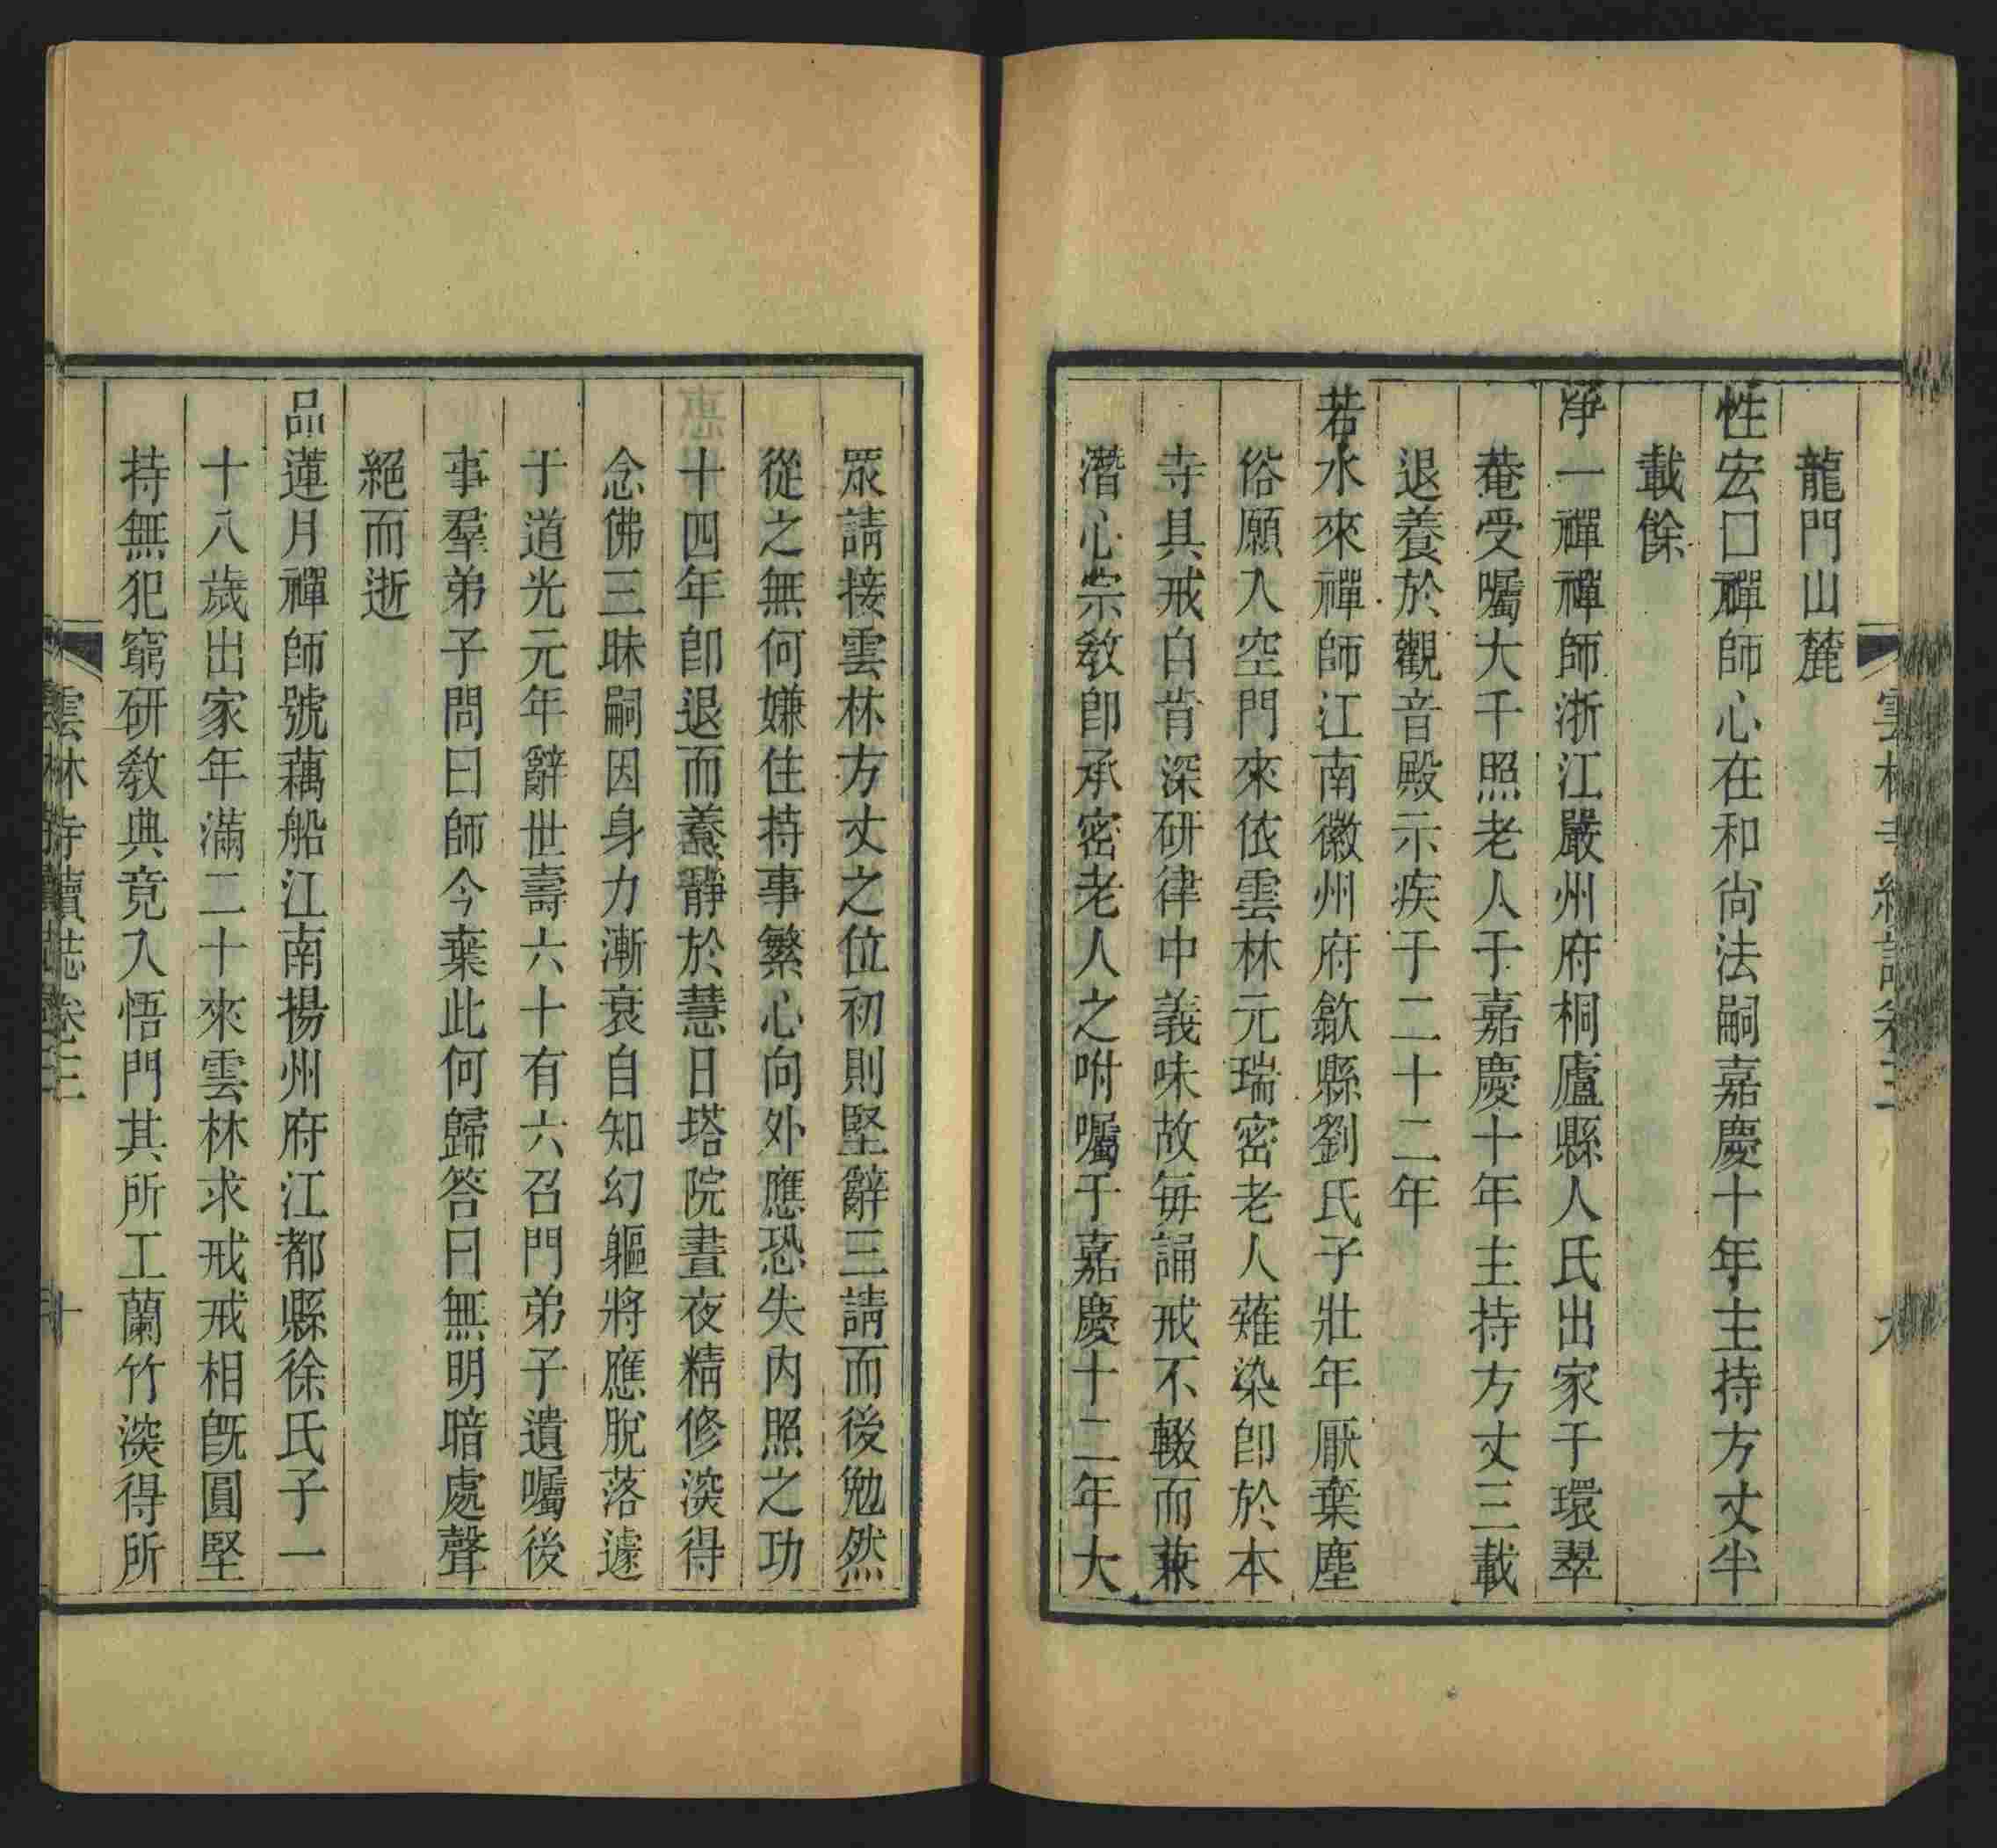 龍門山麓
性宏口禪師心在和尙法嗣嘉慶十年主持方丈半
載餘
淨一禪禪師浙江嚴州府桐廬縣人氏出家于環翠
菴受囑大千照老人于嘉慶十年主持方丈三載
退養於觀音殿示疾于二十二年
若水來禪師江南徽州府歙縣劉氏子壯年厭棄塵
俗願入空門來依雲林元瑞密老人薙染卽於本
寺具戒白肯深研律中義味故每誦戒不輟而兼
潛心宗敎卽承密老人之咐囑于嘉慶十二年大
眾請接雲林方丈之位初則堅辭三請而後勉然
從之無何嫌住持事繁心向外應恐失內照之功
十四年卽退而養靜於慧日塔院晝夜精修湥得
念佛三昧嗣因身力漸衰自知幻軀將應脫落遽
于道光元年辭世壽六十有六召門弟子遺囑後
事羣弟子問曰師今棄此何歸答曰無明暗處聲
絕而逝
品蓮月禪師號藕船江南揚州府江都縣徐氏子一
十八歲出家年滿二十來雲林求戒戒相旣圓堅
持無犯窮硏敎典竟入悟門其所工蘭竹湥得所
雲林寺續誌卷三
十